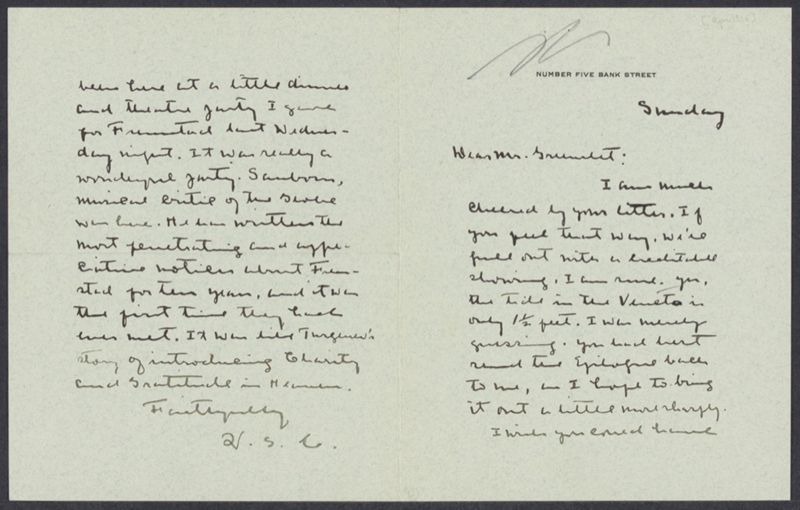 NUMBER FIVE BANK STREET
Sunday
Dear Mr. Greenslet:
I am much
cheered by your letter. If
you feel that way, we'll
pull out with a creditable
showing, I am sure. yes,
the tide in the Veneto is
only 1½ feet. I was merely
guessing. You had best
send the Epilogue back
to me, as I hope to bring
it out a little more sharply.
I wish you could have
been here at a little dinner
and theatre party I gave
for Fremstad last Wednes-
day night. It was really a
wonderful party. Sanborn,
musical critic of the Globe
was here. He has written the
most penetrating and appre-
ciative notices about Frem-
stad for ten years, and it was
the first time they had
ever met. It was like Turgenev's
story of introducing Charity
and Gratitude in Heaven.
Faithfully
W. S. C.